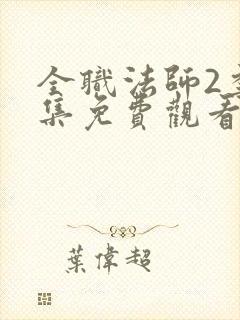 全職法師2季
集免費觀看
葉偉超